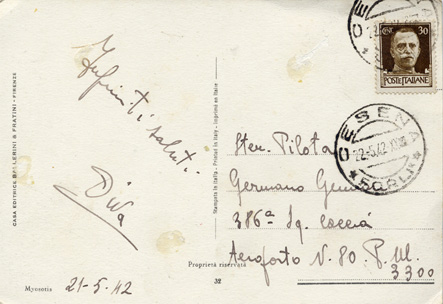 CASA EDITRICE BALLERINI & FRATINI - FIRENZE
Infiniti saluti
Diva
Myosotis
21-5-42
Proprietà riservata
32
Stampata in Italia - Printed in Italy - Imprimé en Italie
CENT. 30
POSTE ITALIANE
CESENA
22.5.42
*(FORLI)*
Ser. Pilota
Germano
386ª Sq. caccia
Aeroporto N. 80. P. M.
3300